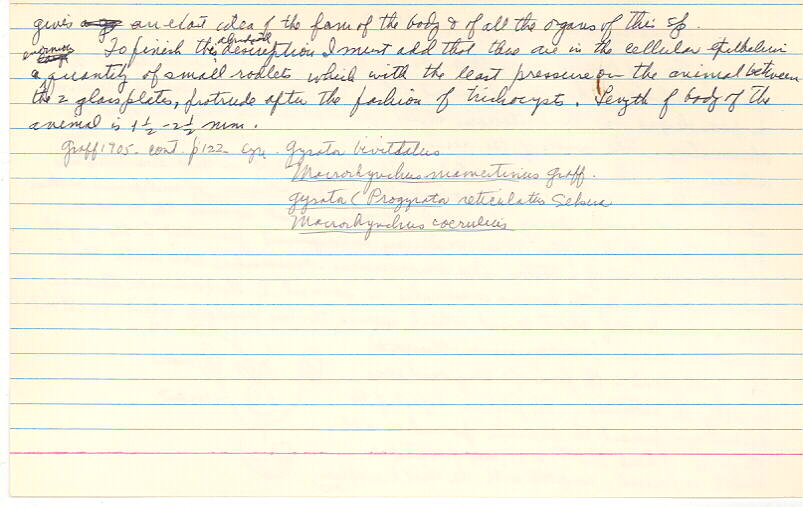 gives an exact idea of the form of the body & of all the organs of this sp.
To finish this description I must add that there are in the cellular epithelium
enormous quantity of small rodlets which with the least pressure on the animal between
the 2 glass plates, protrude after the fashion of trichocysts. Length of body of the
animal is 1½-2½ mm.
Graff 1905. cont. p122- syn. Gyrator
Macrorhynchus mamertinus Graff.
Gyrator (Progyrator reticulatus Sekera
Macrorhynchus coeruleus